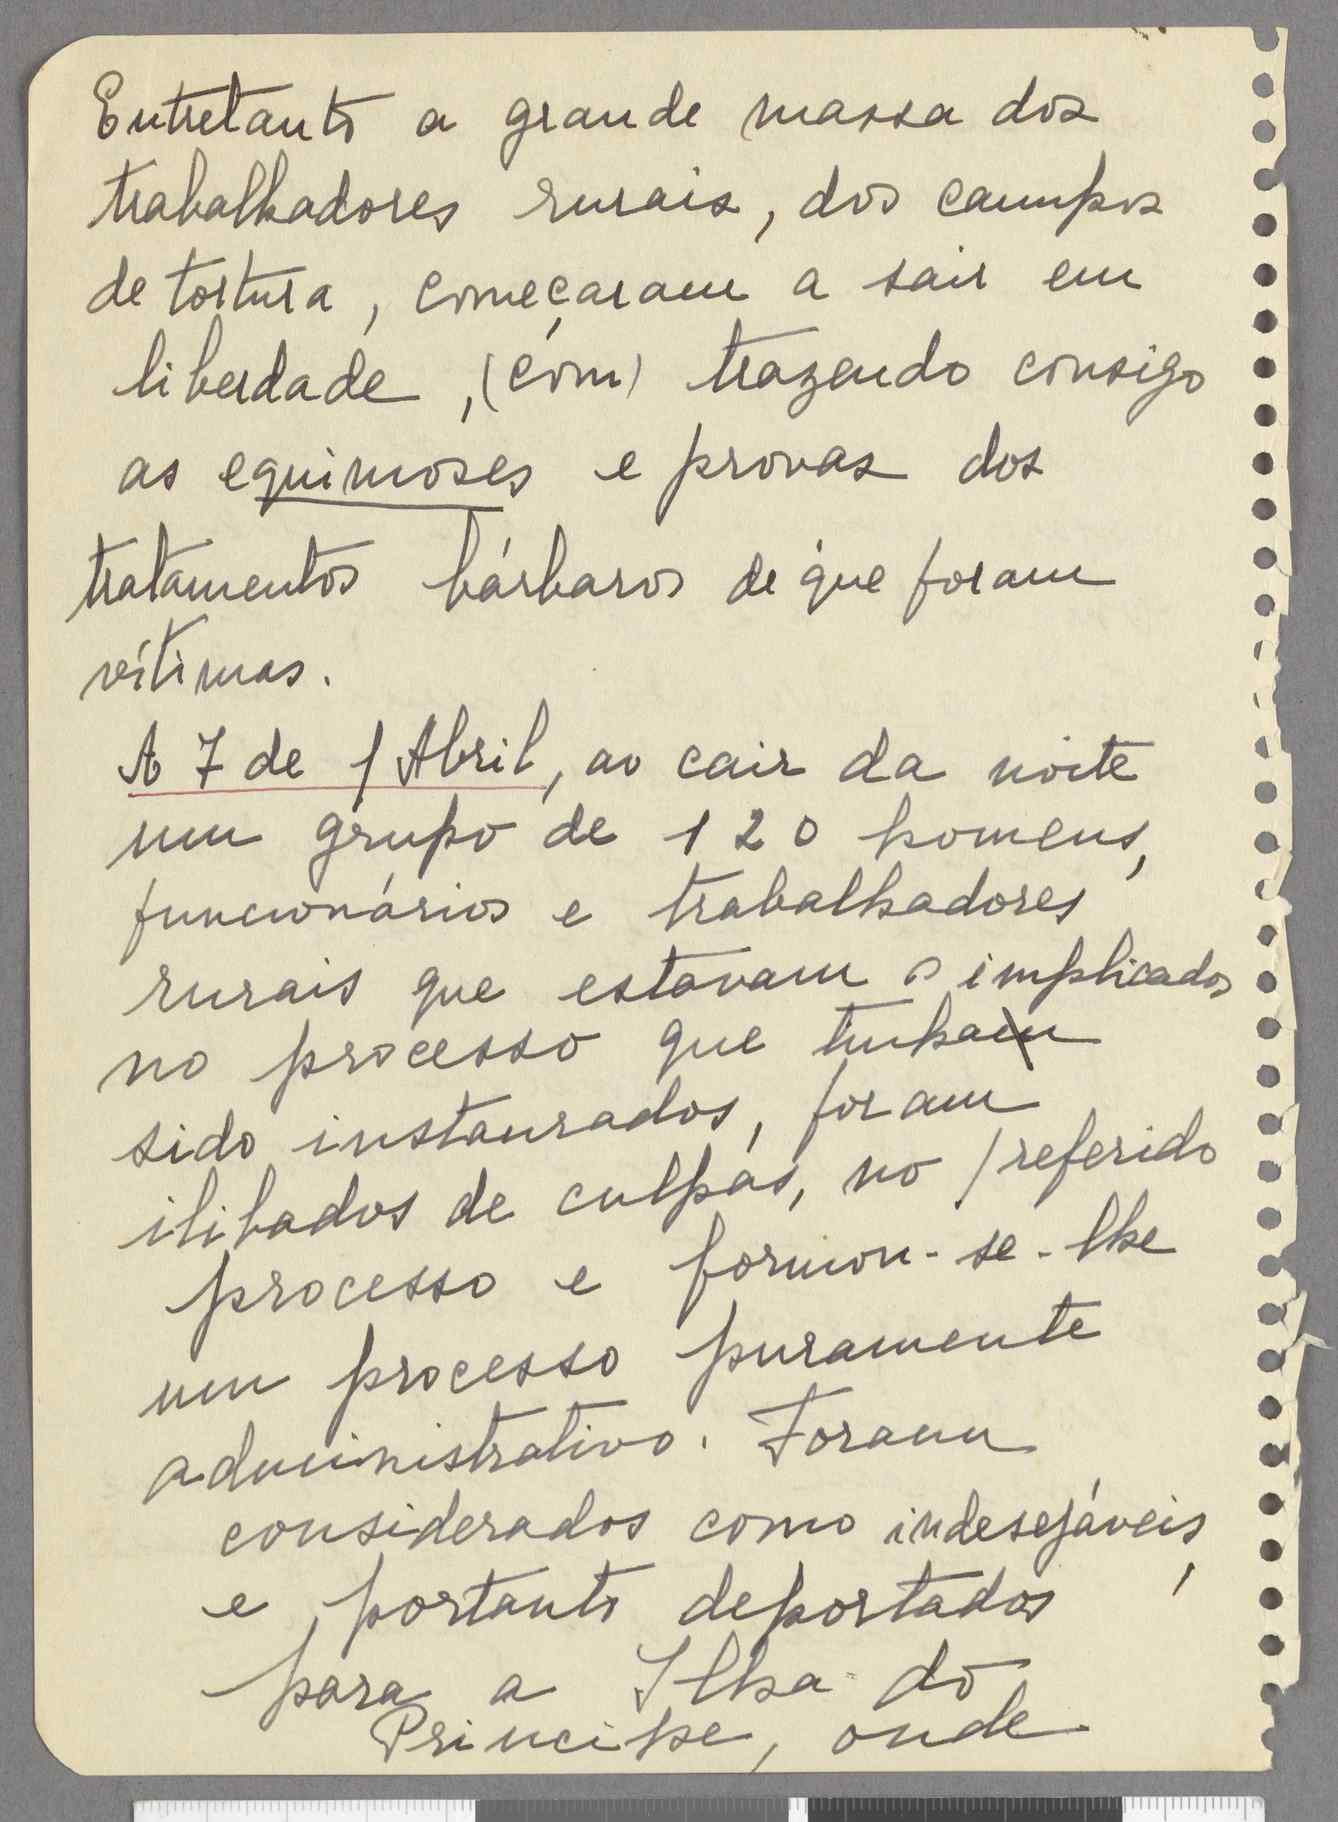 Entretanto a grande massa dos
trabalhadores rurais, dos campos
de tortura, começaram a sair em
liberdade, (com) trazendo consigo
as equimoses e provas dos
tratamentos bárbaros de que foram
vítimas.
A 7 de / Abril, ao cair da noite
um grupo de 120 homens,
funcionários e trabalhadores
rurais que estavam implicados
no processo que tinham
sido instaurados, foram
ilibados de culpas, no / referido
processo e formou-se-lhe
um processo puramente
administrativo. Foram
considerados como indesejáveis,
e portanto deportados
para a Ilha do
Principe, onde